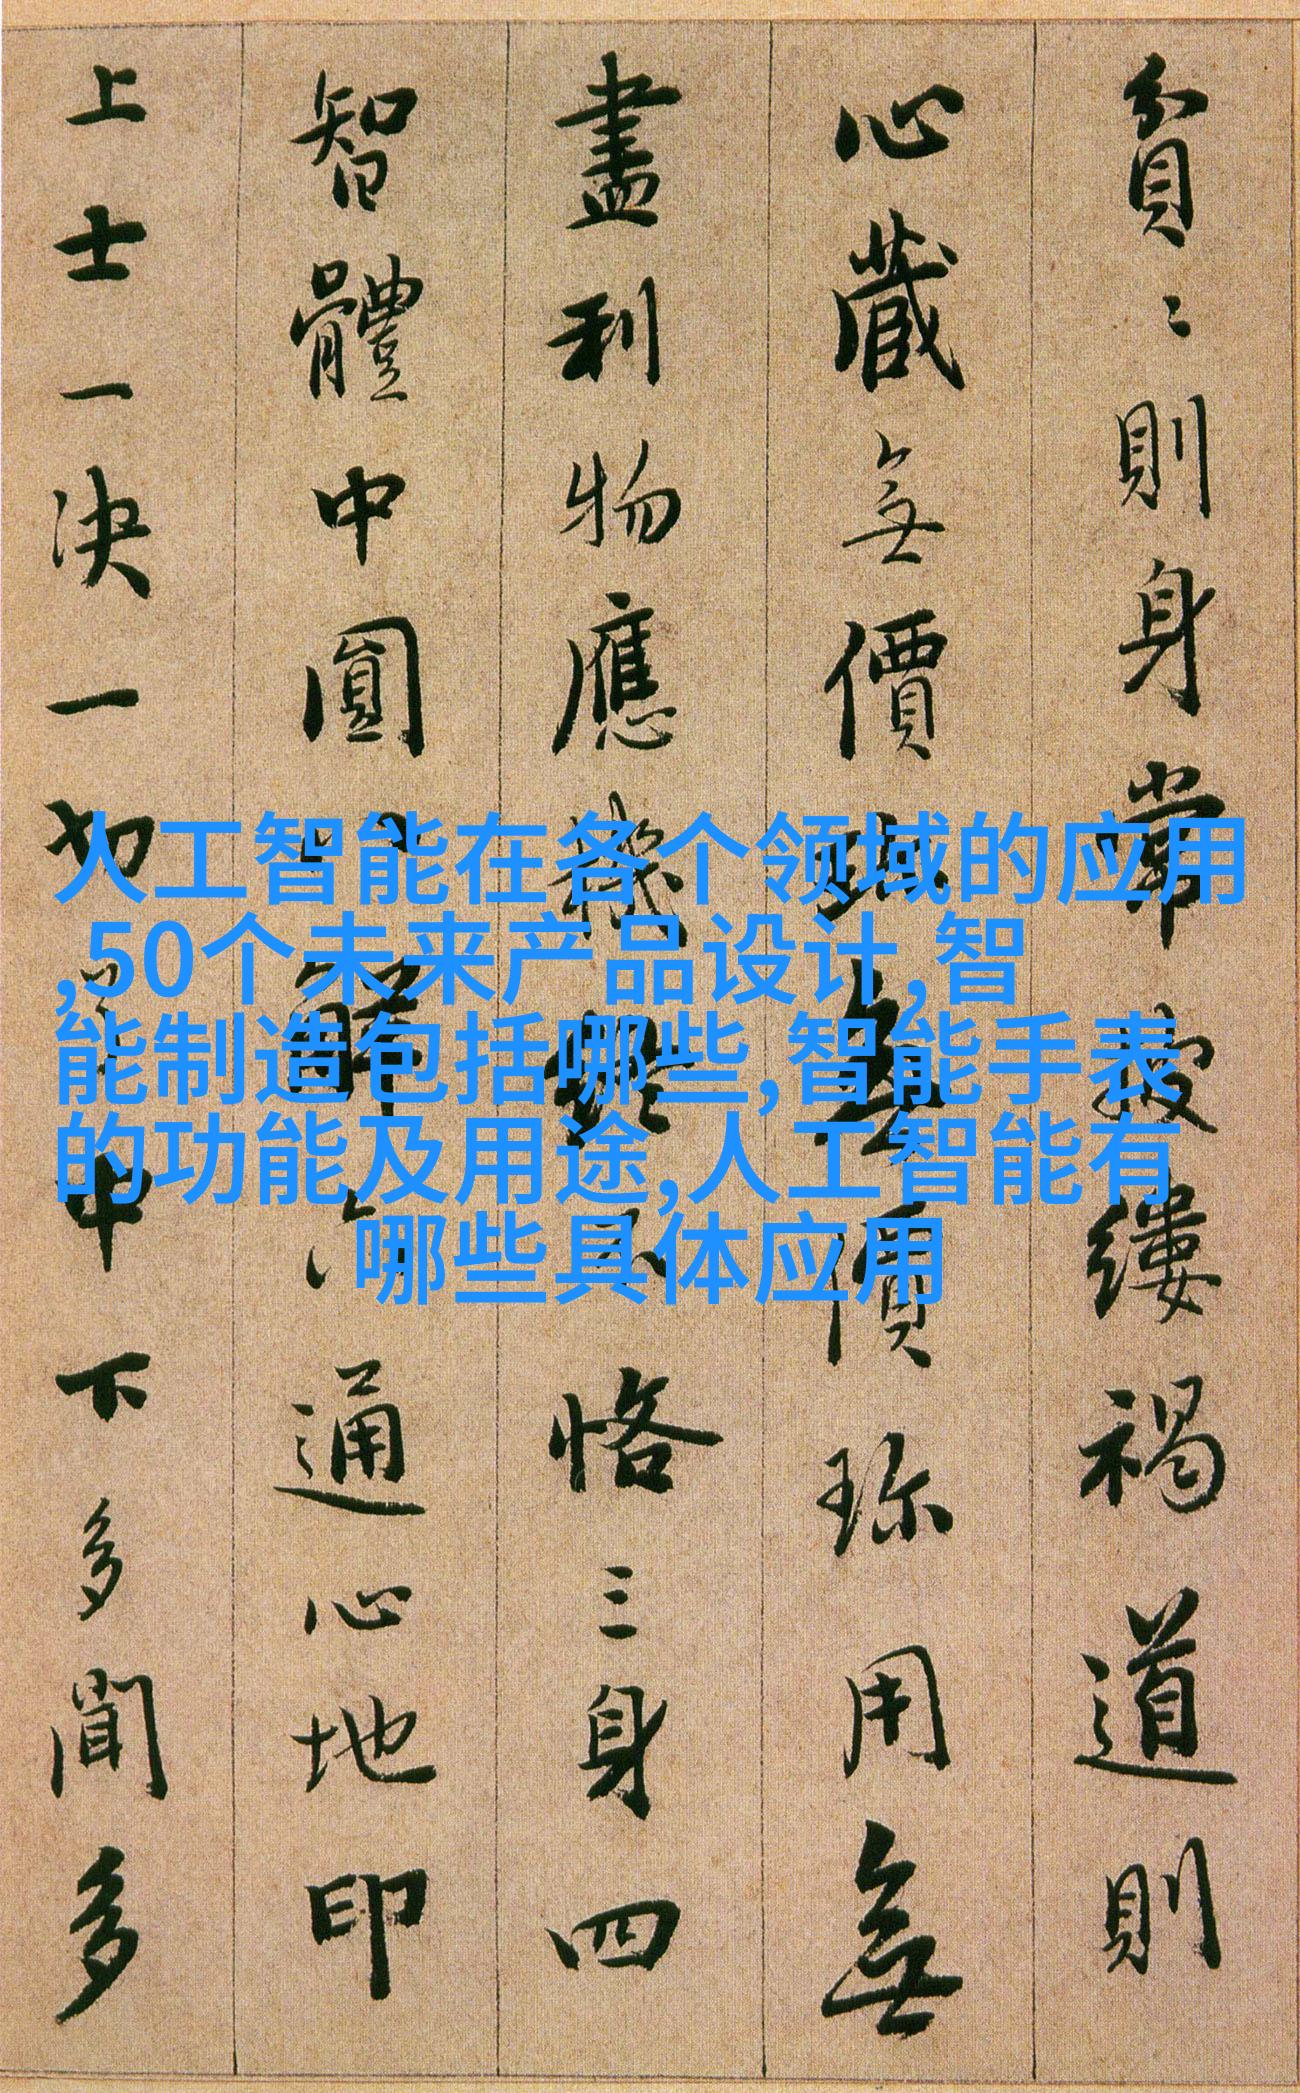 貧〻〻則身常披縷褐道則
心藏無價珎無價珎用無
盡利物應機終不恪三身四
智體中圓八解六通心地印
上士一决一切了中下多聞多
人工智能在各个领域的应用
,50个未来产品设计,智
能制造包括哪些,智能手表
的功能及用途,人工智能有
哪些具体应用